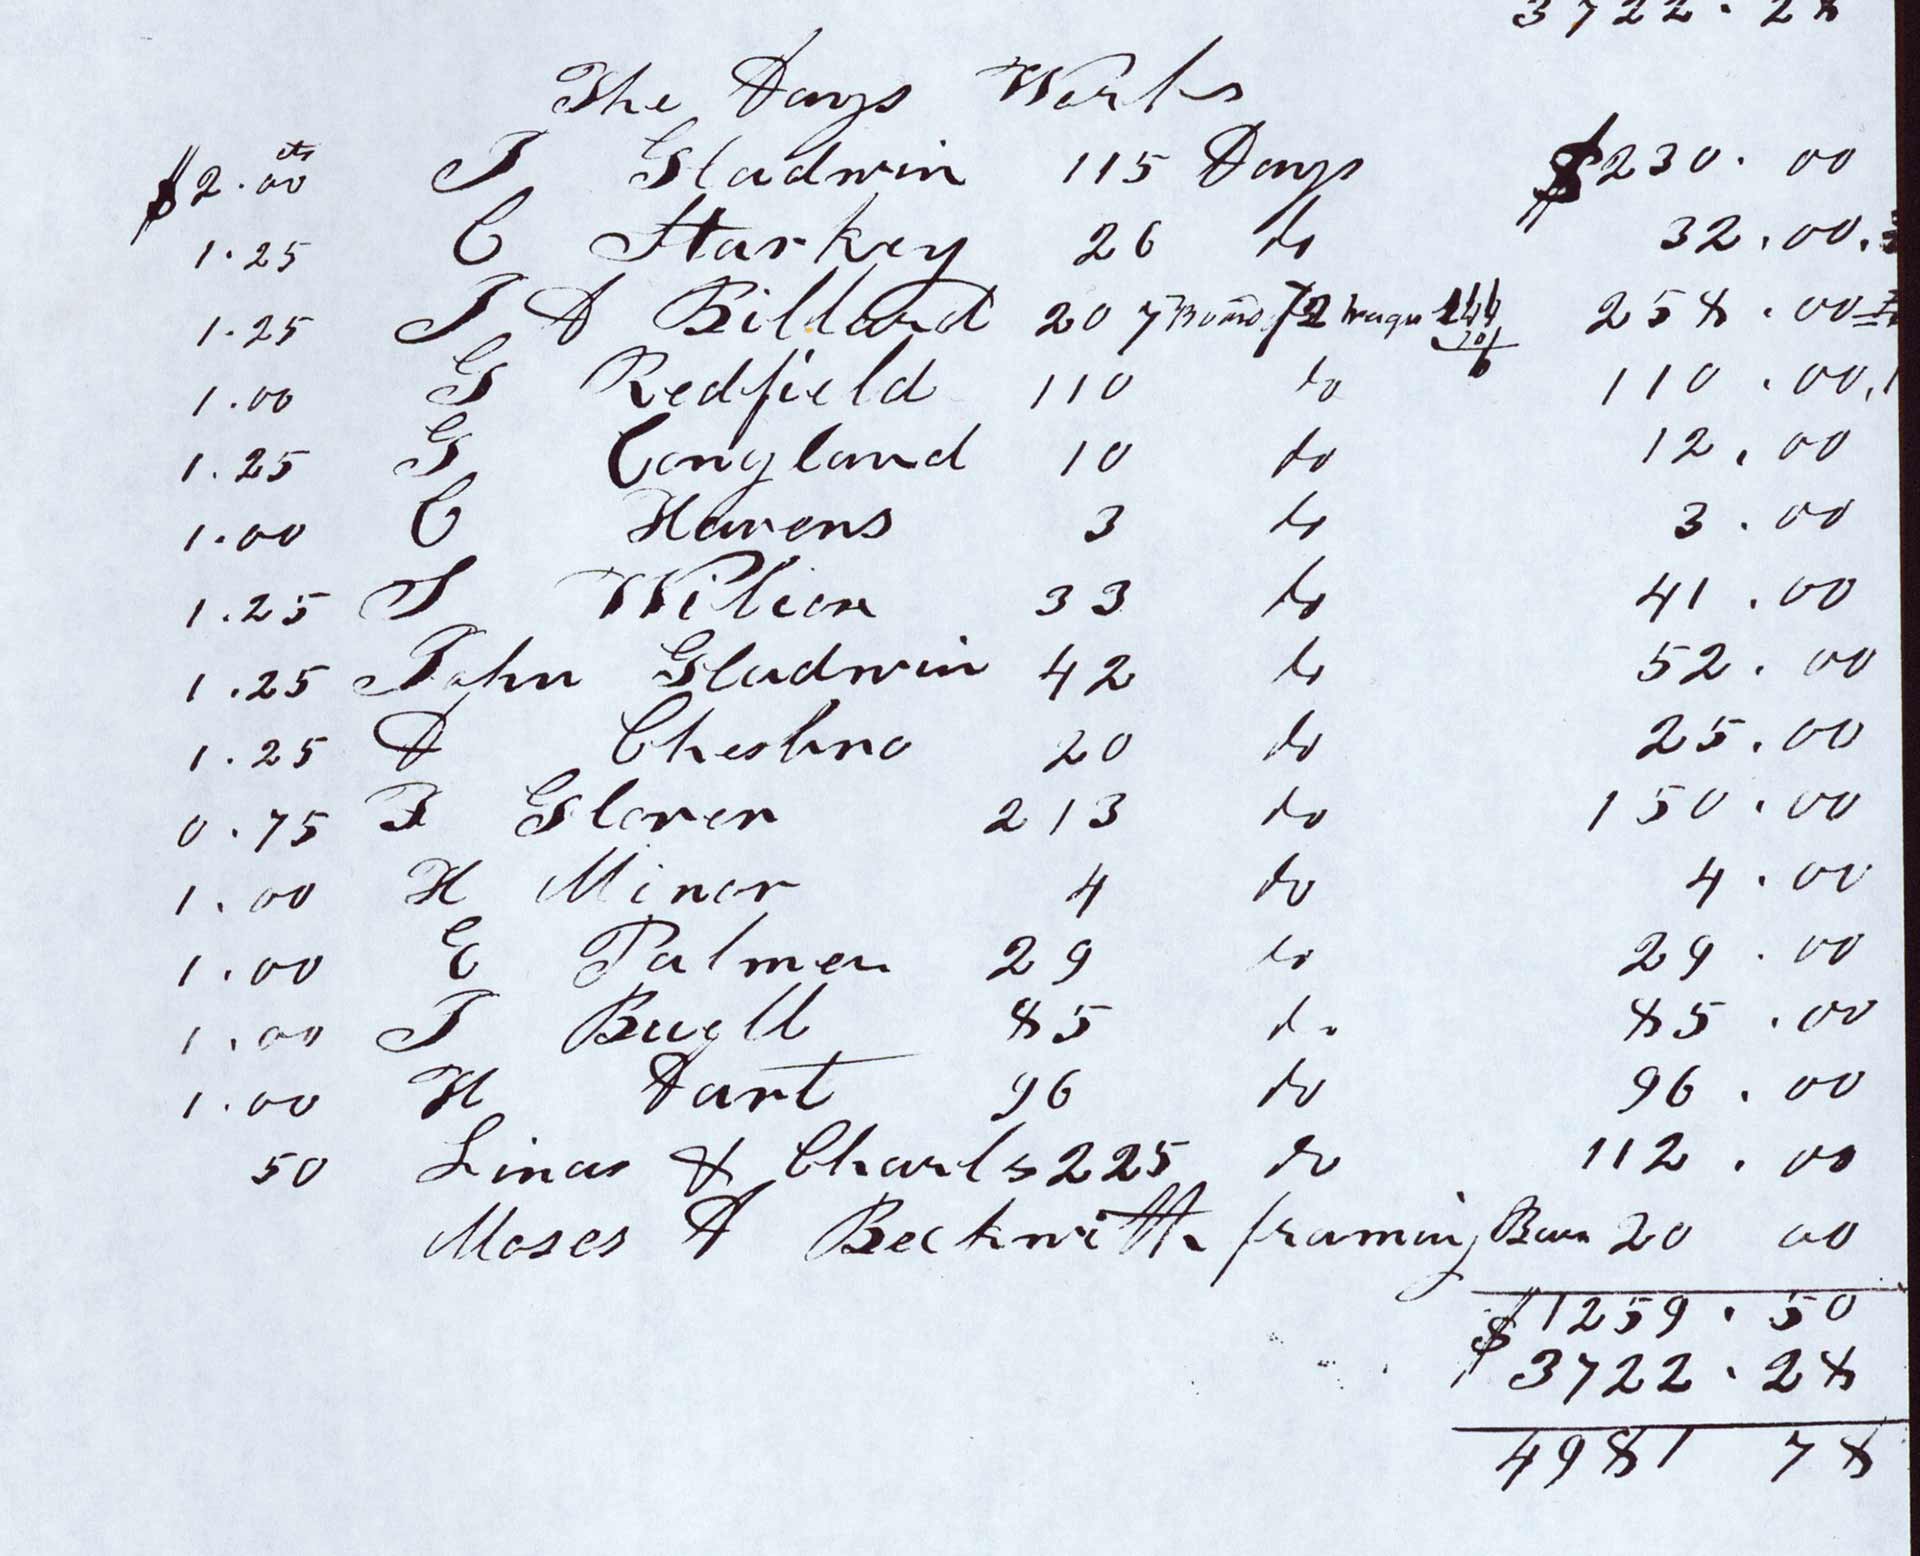 3722.28
The Days Works
$2.00 cts J Gladwin 115 Days $230.00
1.25 C Starkey 26 do 32.00.
1.25 J A Billard 207 72 144 258.00
1.00 G Redfield 110 do 110.00.
1.25 G Congland 10 do 12.00
1.00 C Havens 3 do 3.00
1.25 S Wilion 33 do 41.00
1.25 John Gladwin 42 do 52.00
1.25 A Chesbro 20 do 25.00
0.75 F Glover 213 do 150.00
1.00 H Minor 4 do 4.00
1.00 E Palmer 29 do 29.00
1.00 J Buell 85 do 85.00
1.00 H Dart 96 do 96.00
50 Linas & Charls 225 do 112.00
Moses A Beckwith framing Barn 20 00
$1259.50
$3722.28
4981 78